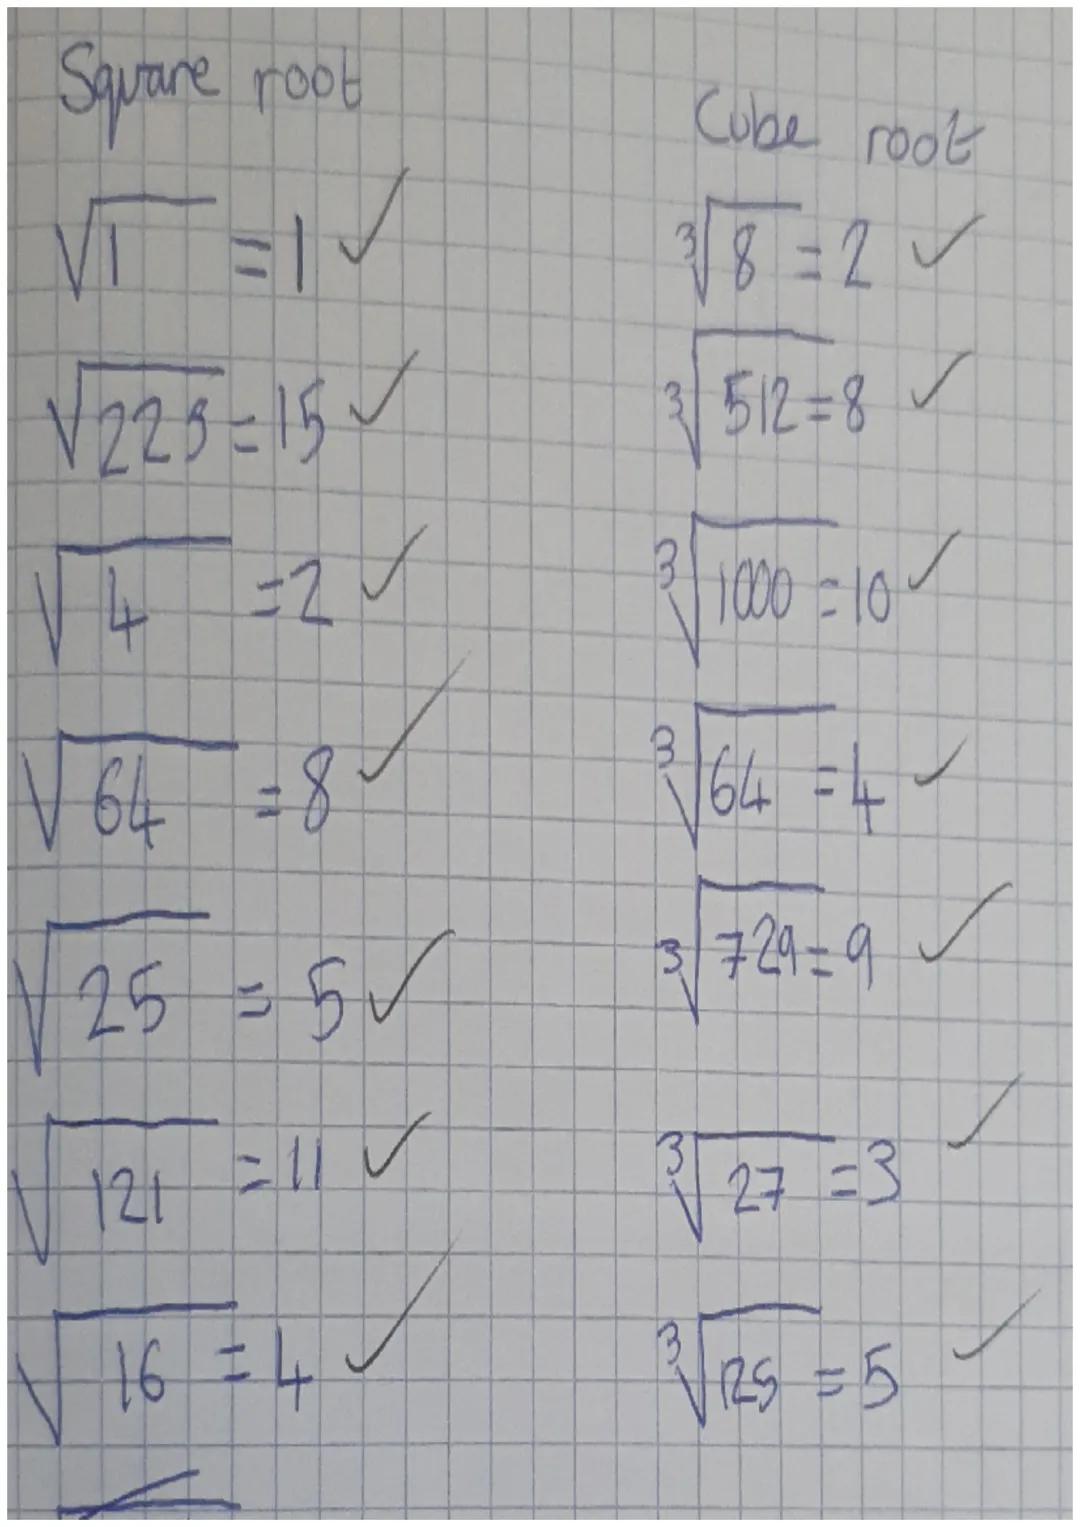 Square root
√1 = 1 ✓
√225 = 15 ✓
√4 = 2 ✓
√64 = 8 ✓
√25 = 5 ✓
√121 = 11 ✓
√16 = 4 ✓
Cube root
³√8 = 2 ✓
³√512 = 8 ✓
³√1000 = 10 ✓
³√64 = 4 ✓
³√729 = 9 ✓
³√27 = 3 ✓
³√125 = 5 ✓